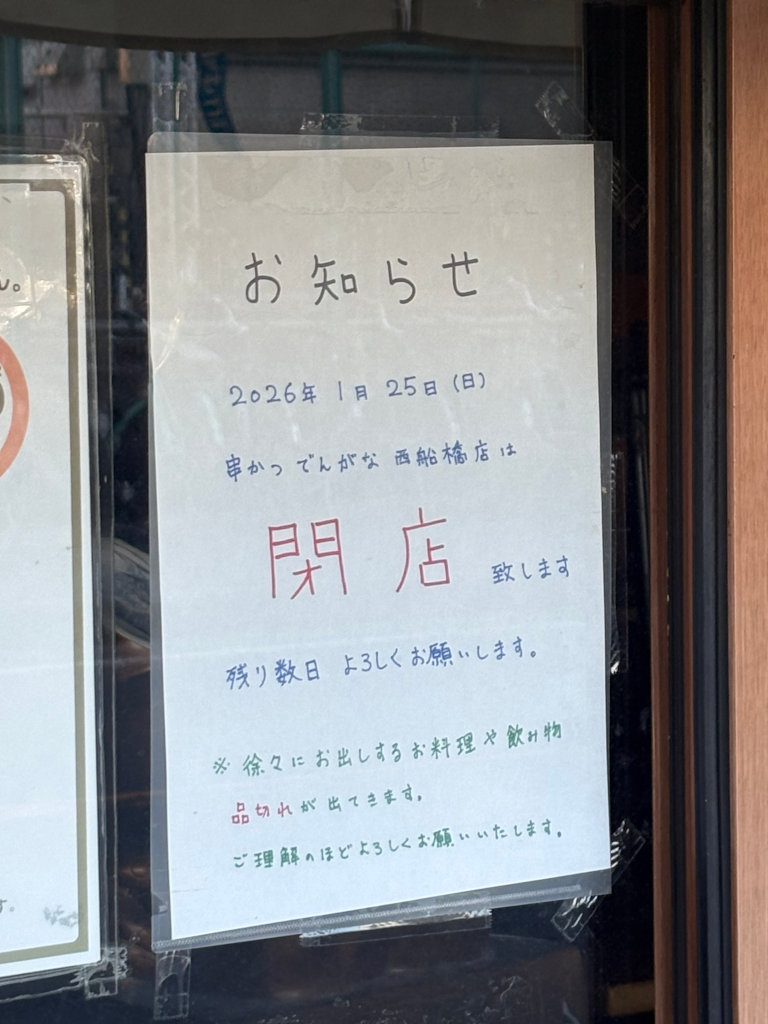 お知らせ
2026年 1月 25日(日)
串かつ でんがな 西船橋店は
閉店 致します
残り数日 よろしくお願いします。
※ 徐々にお出しするお料理や飲み物
品切れが出てきます。
ご理解のほどよろしくお願いいたします。
ん。
す。